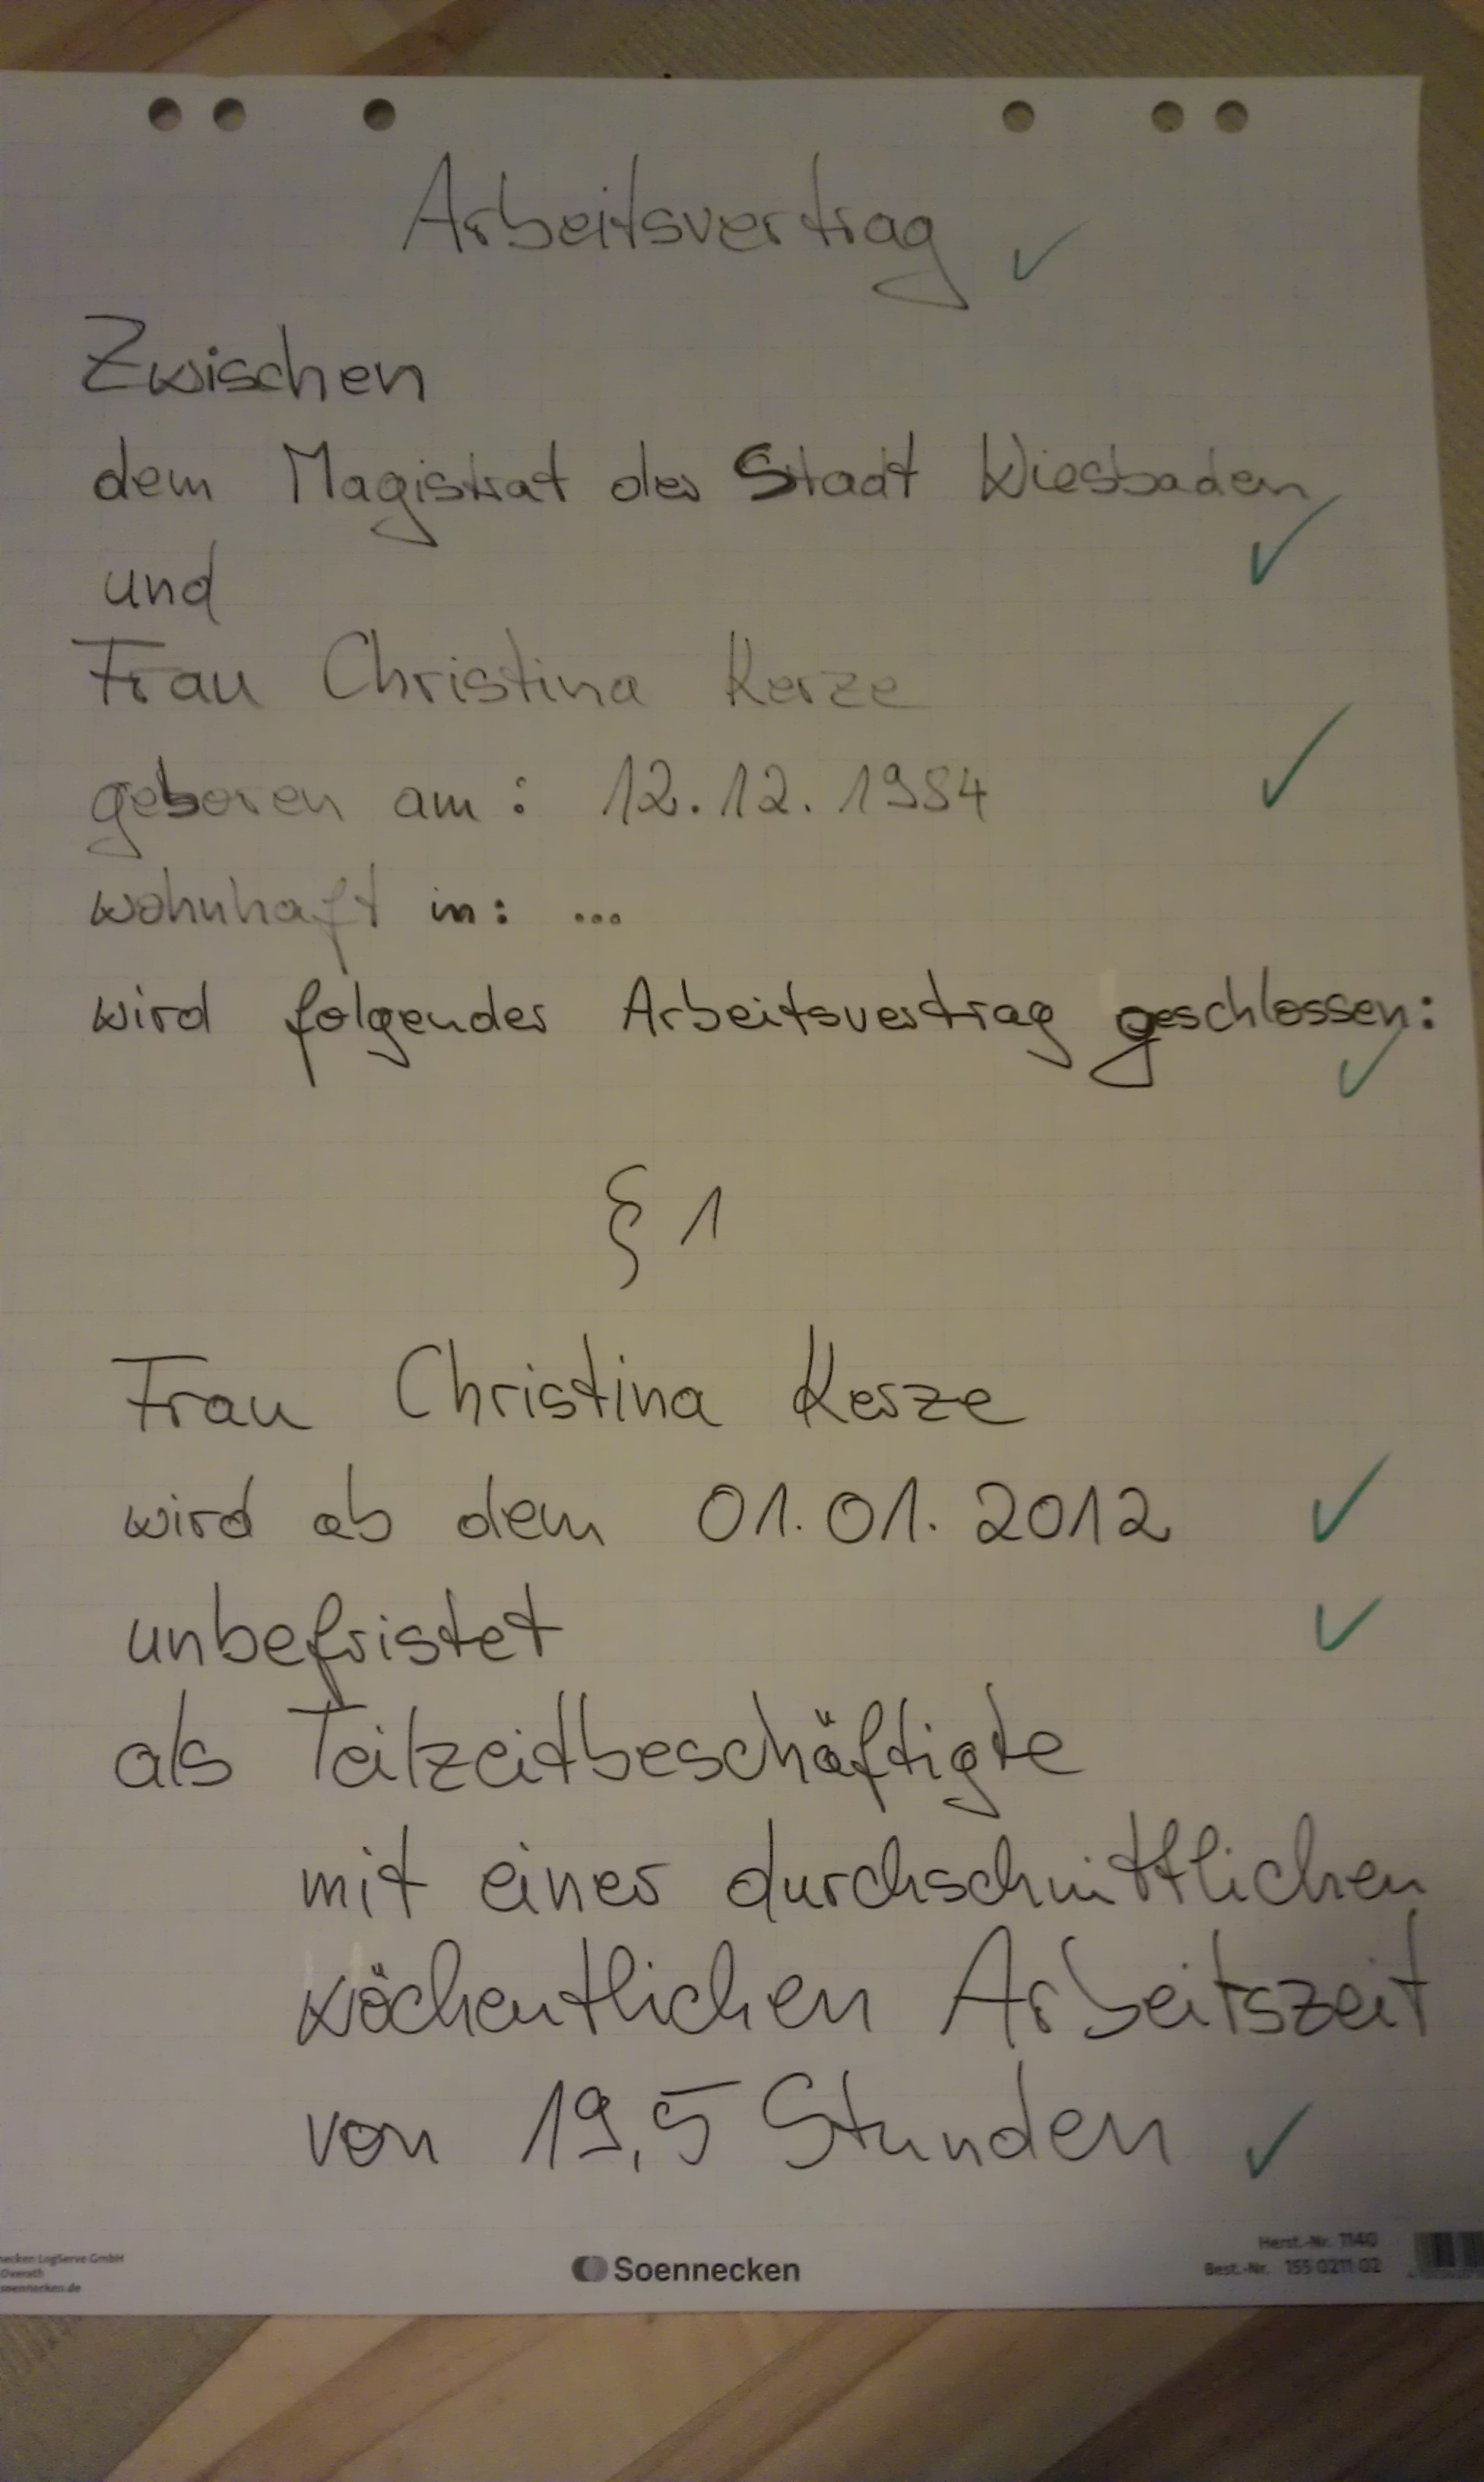 Arbeitsvertrag
Zwischen
dem Magistrat der Stadt Wiesbaden
und
Frau Christina Kerze
geboren am: 12.12.1984
wohnhaft in: ...
wird folgender Arbeitsvertrag geschlossen:
§ 1
Frau Christina Kerze
wird ab dem 01.01.2012
unbefristet
als Teilzeitbeschäftigte
mit einer durchschnittlichen
wöchentlichen Arbeitszeit
von 19,5 Stunden
necken LogServe GmbH
Overath
soennecken.de
Soennecken
Herst.-Nr. 1140
Best.-Nr. 155 0211 02